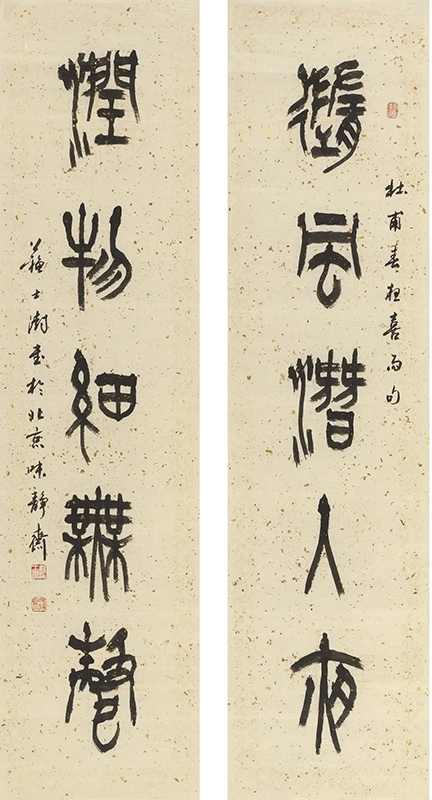 杜甫春夜喜雨句
隨風潛入夜
潤物細無聲
蘇士澍書於北京味靜齋